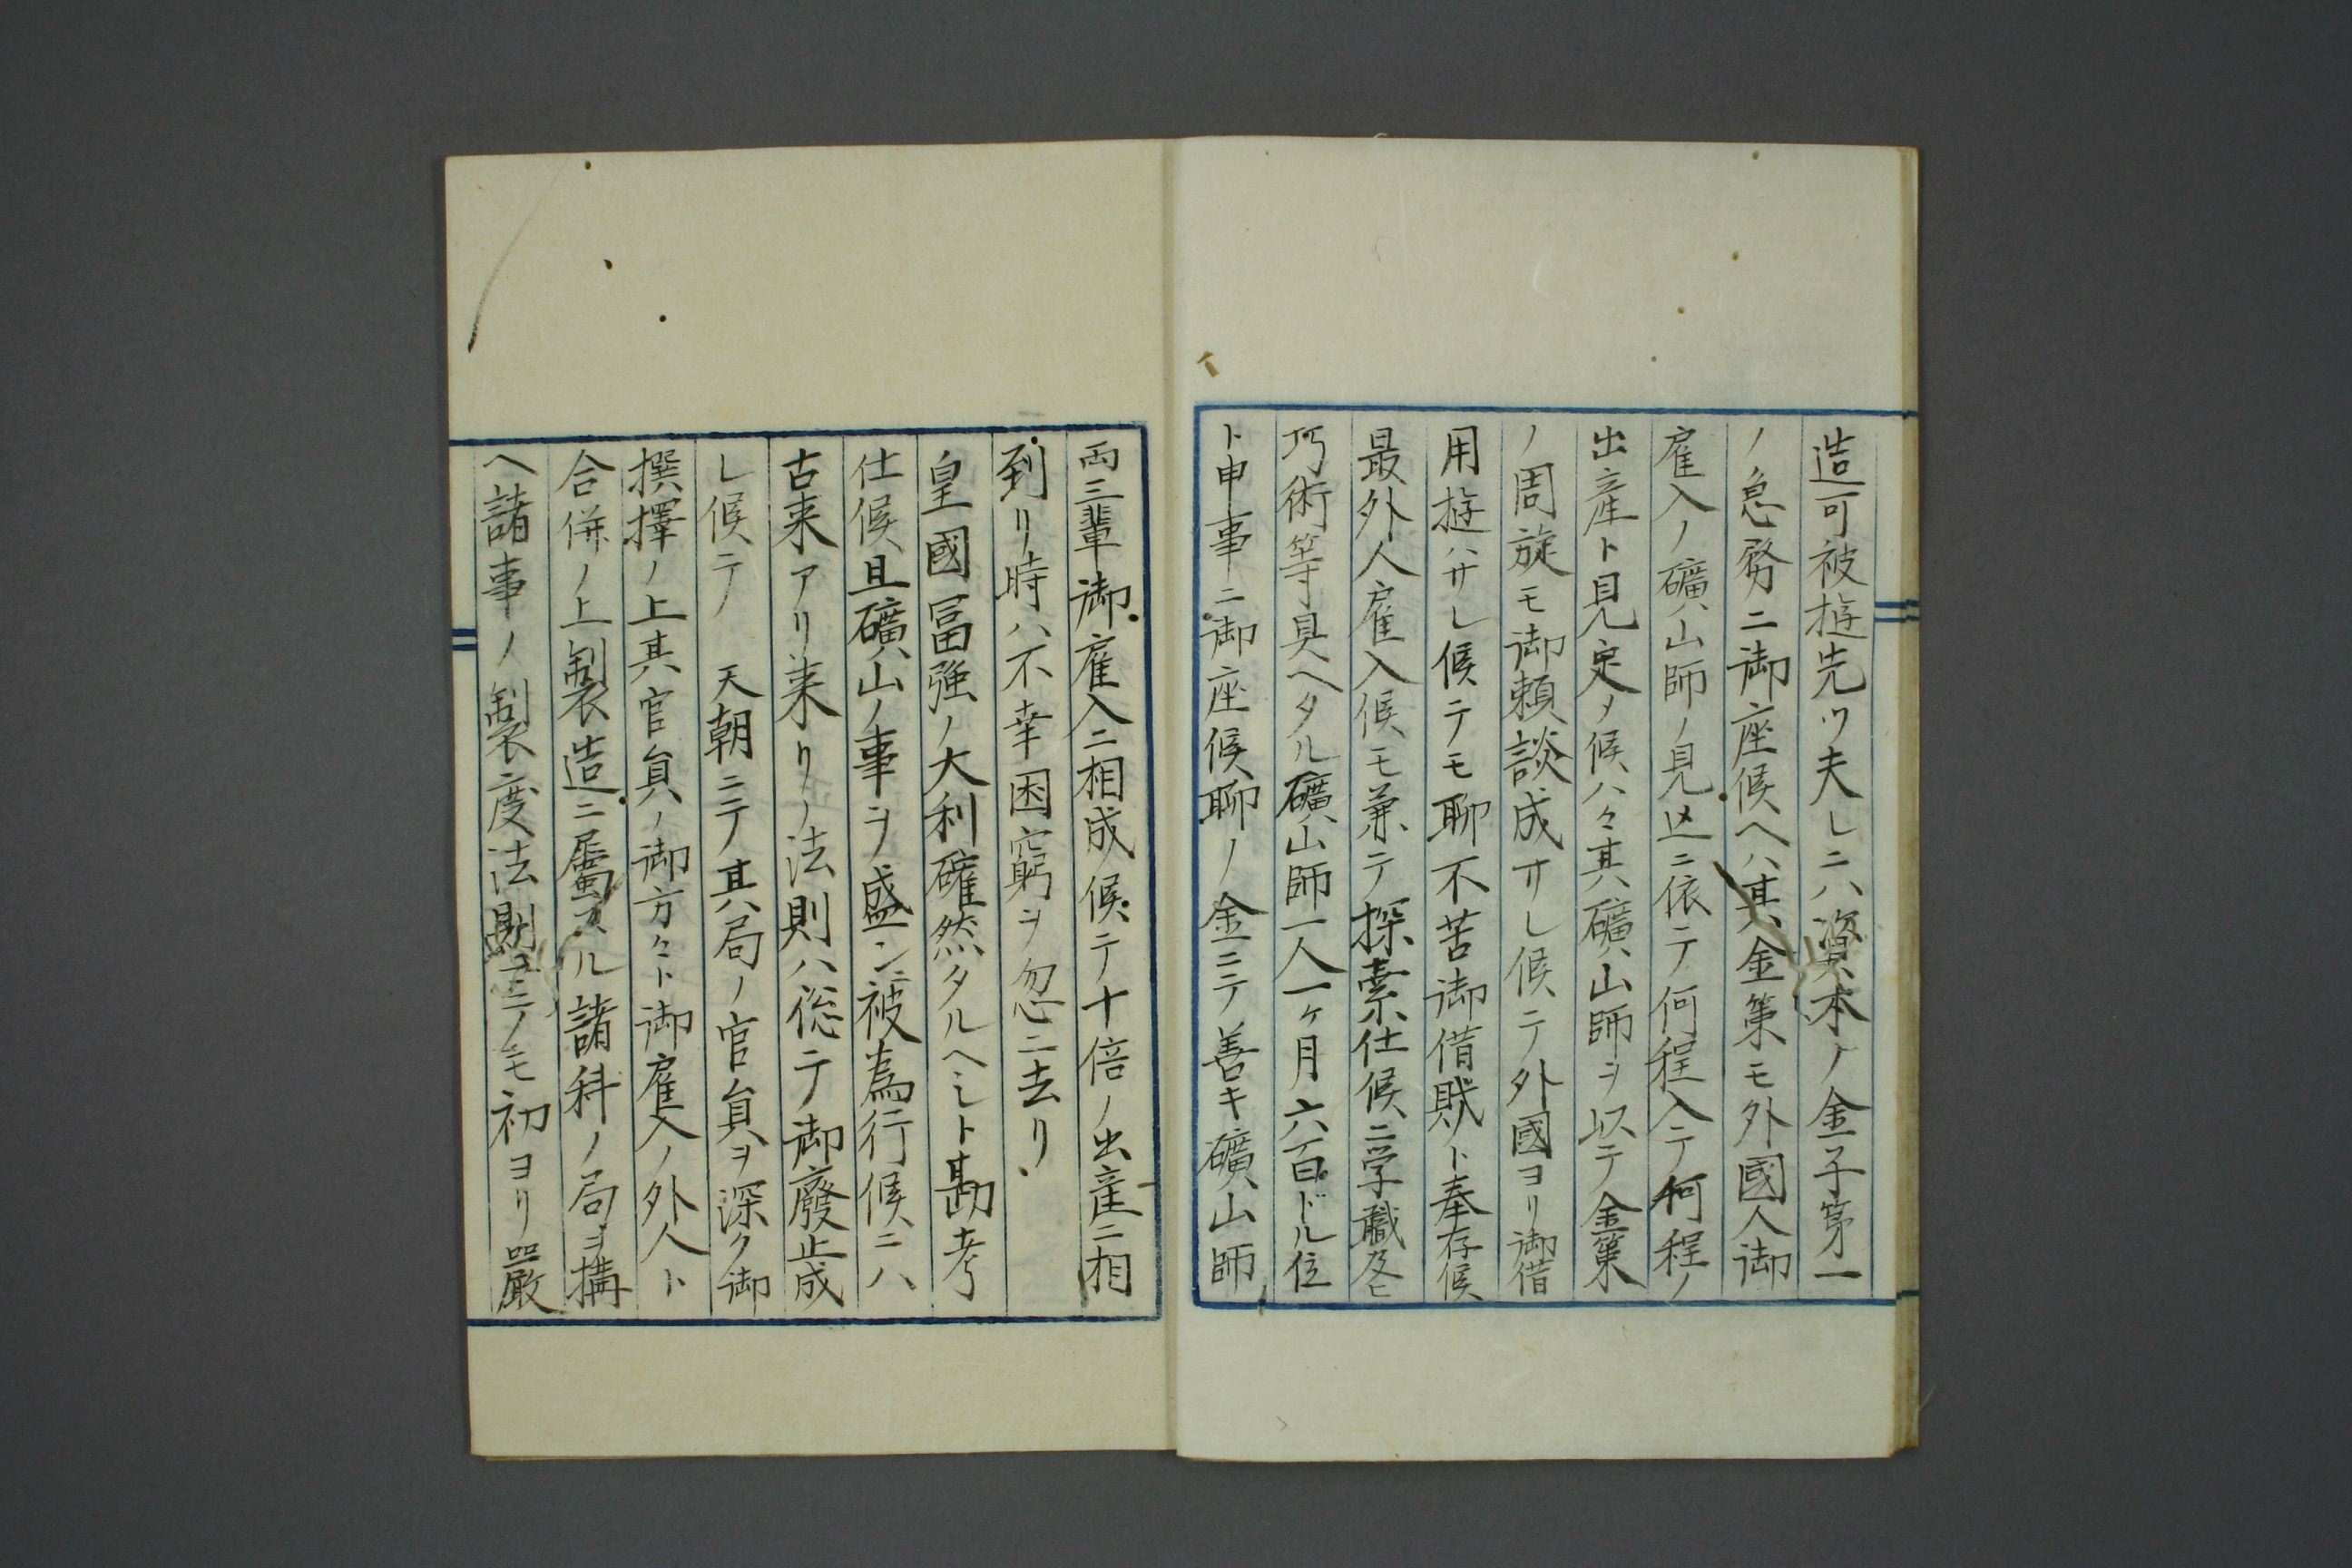 造可被遊先ツ夫レニハ資本ノ金子第一
ノ急務ニ御座候ヘハ其金策モ外國人御
雇入ノ礦山師ノ見込ニ依テ何程入テ何程ノ
出産ト見定メ候ハヽ其礦山師ヲ以テ金策
ノ周旋モ御頼談成サレ候テ外國ヨリ御借
用遊ハサレ候テモ聊不苦御借財ト奉存候
最外人雇入候モ兼テ探索仕候ニ学職及ヒ
巧術等具ヘタル礦山師一人一ヶ月六百ドル位
ト申事ニ御座候聊ノ金ニテ善キ礦山師
両三輩御雇入ニ相成候テ十倍ノ出産ニ相
到リ時ハ不幸困窮ヲ忽ニ去リ
皇國冨強ノ大利確然タルヘシト勘考
仕候且礦山ノ事ヲ盛ンニ被為行候ニハ
古来アリ来リノ法則ハ總テ御廢止成
レ候テ 天朝ニテ其局ノ官員ヲ深ク御
撰擇ノ上其官員ノ御方々ト御雇入ノ外人ト
合併ノ上製造ニ屬スル諸科ノ局ヲ搆
ヘ諸事ノ製度法則ヨニノモ初ヨリ嚴